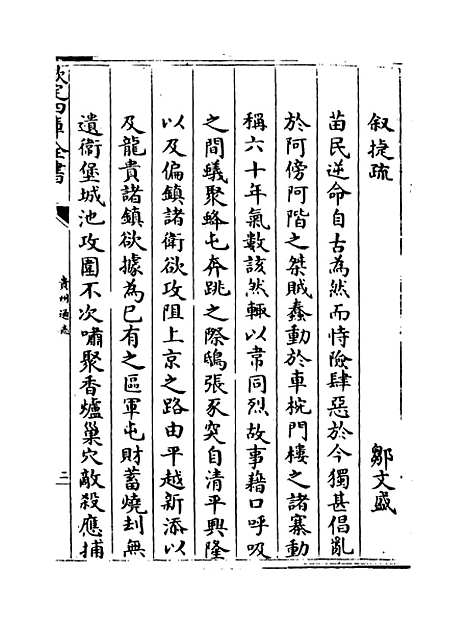 叙捷疏 鄒文盛
苗民逆命自古為然而恃險肆惡於今獨甚倡亂
於阿傍阿階之桀賊蠢動於車椀門樓之諸寨動
稱六十年氣數該然輒以韋同烈故事藉口呼吸
之間蟻聚蜂屯奔跳之際鴟張豕突自清平興隆
以及偏鎮諸衛欲攻阻上京之路由平越新添以
及龍貴諸鎮欲據為已有之區軍屯財蓄燒刦無
遺衛堡城池攻圍不次嘯聚香爐巢穴敵殺應捕
欽定四庫全書
貴州通志
二